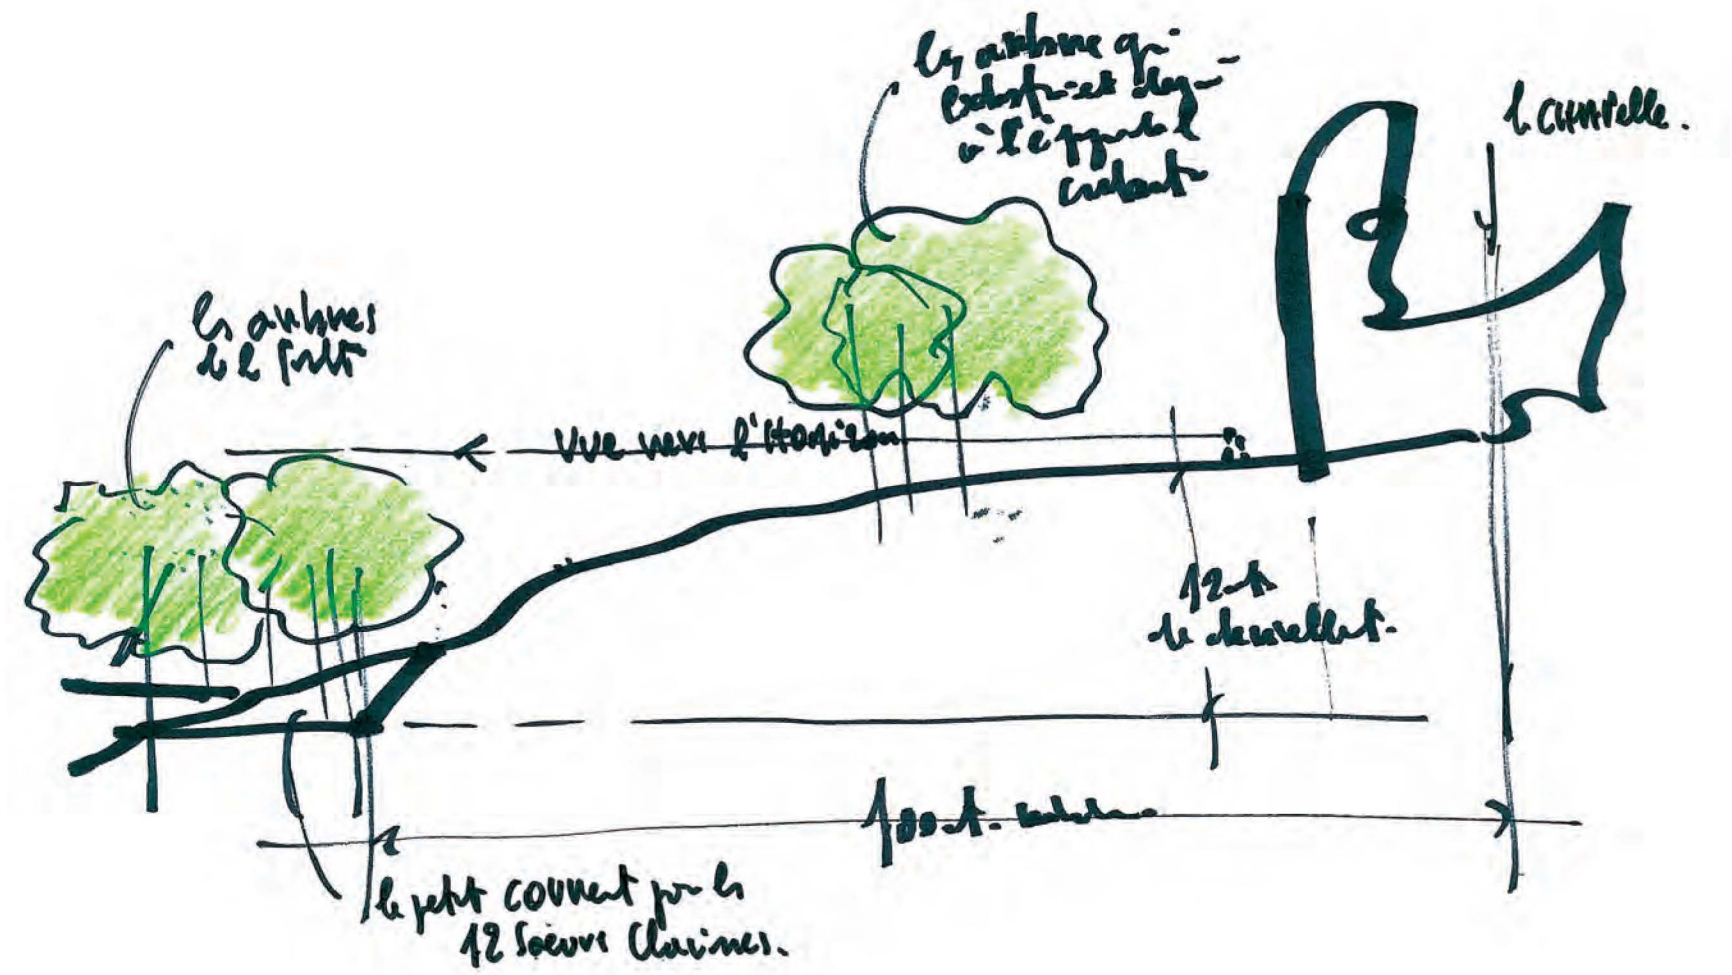 les arbres qui
existaient déjà
à l'époque de
la chapelle.
les arbres
de la forêt
vue vers l'Horizon
12 mt
de dénivellat.
100 mt.
le petit couvent pour les
12 Soeurs Clarisses.